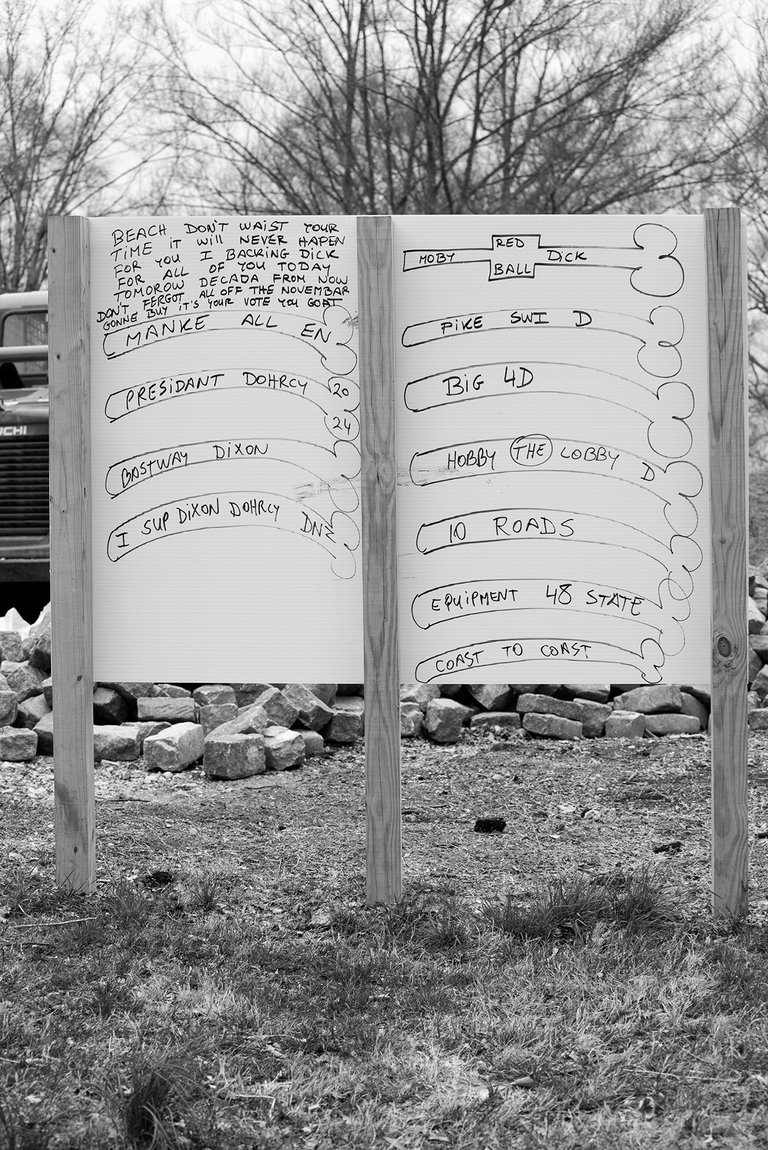 BEACH DON'T WAIST YOUR
TIME IT WILL NEVER HAPEN
FOR YOU I BACKING DICK
FOR ALL OF YOU TODAY
TOMOROW DECADA FROM NOW
DON'T FERGOT ALL OFF THE NOVEMBAR
GONNE BUY IT'S YOUR VOTE YOU GOAT
MANKE ALL EN
PRESIDANT DOHRCY 20
24
BOSTWAY DIXON
I SUP DIXON DOHRCY
RED
MOBY DICK
BALL
PIKE SWI D
BIG 4D
HOBBY THE LOBBY D
10 ROADS
EQUIPMENT 48 STATE
COAST TO COAST
UCHI